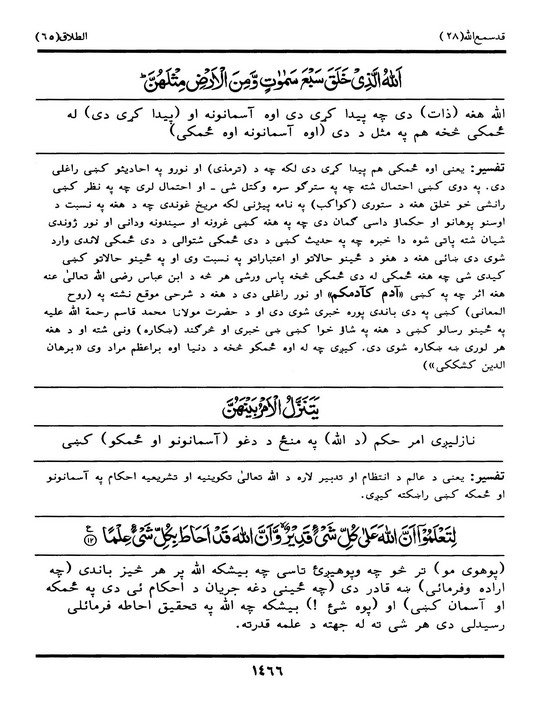 قدسمع‌الله(٢٨)
الطلاق(٦٥)
اَللّٰهُ الَّذِیْ خَلَقَ سَبْعَ سَمٰوٰتٍ وَّمِنَ الْاَرْضِ مِثْلَهُنَّ ؕ
الله هغه (ذات) دی چه پیدا کړی دی اوه آسمانونه او (پیدا کړی دی) له
ځمکی څخه هم په مثل د دی (اوه آسمانونه اوه ځمکی)
تفسیر: یعنی اوه ځمکی هم پیدا کړی دی لکه چه د (ترمذی) او نورو په احادیثو کښی راغلی
دی. په دوی کښی احتمال شته چه په سترگو سره وکتل شی ـ او احتمال لری چه په نظر کښی
رانشی خو خلق هغه د ستوری (کواکب) په نامه پیژنی لکه مریخ غوندی چه د هغه په نسبت د
اوسنو پوهانو او حکماؤ داسی گمان دی چه په هغه کښی غرونه او سیندونه ودانی او نور ژوندی
شیان شته پاتی شوه دا خبره چه په حدیث کښی د دی ځمکی شتوالی د دی ځمکی لاندی وارد
شوی دی ښائی هغه د هغو د ځینو حالاتو او اعتباراتو په نسبت وی او په ځینو حالاتو کښی
کیدی شی چه هغه ځمکی له دی ځمکی څخه پاس ورشی هر څه د ابن عباس رضی الله تعالیٰ عنه
هغه اثر چه په کښی «آدم کآدمکم» او نور راغلی دی د هغه د شرحی موقع نشته په (روح
المعانی) کښی په دی باندی پوره خبری شوی دی او د حضرت مولانا محمد قاسم رحمة الله علیه
په ځینو رسالو کښی د هغه په شاؤ خوا کښی ښی خبری او څرگند (ښکاره) ونی شته او د هغه
هر لوری ښه ښکاره شوی دی. کیږی چه له اوه ځمکو څخه د دنیا اوه براعظم مراد وی «برهان
الدین کشککی»)
یَتَنَزَّلُ الْاَمْرُ بَیْنَهُنَّ
نازلیږی امر حکم (د الله) په منځ د دغو (آسمانونو او ځمکو) کښی
تفسیر: یعنی د عالم د انتظام او تدبیر لاره د الله تعالیٰ تکوینیه او تشریعیه احکام په آسمانونو
او ځمکه کښی راښکته کیږی.
لِتَعْلَمُوْۤا اَنَّ اللّٰهَ عَلٰی كُلِّ شَیْءٍ قَدِیْرٌ ۙ۬ وَّاَنَّ اللّٰهَ قَدْ اَحَاطَ بِكُلِّ شَیْءٍ عِلْمًا ﴿١٢﴾ ع
(پوهوی مو) تر څو چه وپوهیږئ تاسی چه بیشکه الله پر هر څیز باندی (چه
اراده وفرمائی) ښه قادر دی (چه ځینی دغه جریان د احکام ئی دی په ځمکه
او آسمان کښی) او (پوه شئ !) بیشکه چه الله په تحقیق احاطه فرمائلی
رسیدلی دی هر شی ته له جهته د علمه قدرته.
١٤٦٦